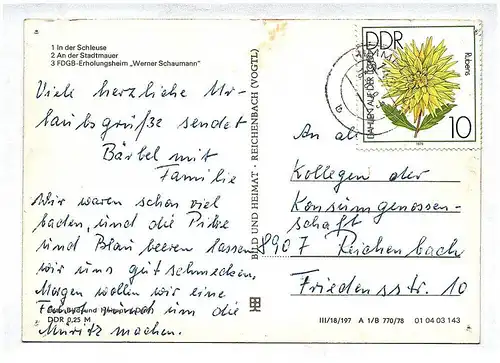 1 In der Schleuse
2 An der Stadtmauer
3 FDGB-Erholungsheim „Werner Schaumann"
Viele herzliche Ur-
laubsgrüße sendet
Bärbel mit
Familie
Wir waren schon viel
baden, und die Pilze
und Blau beeren lassen
wir uns gut schmecken.
Morgen wollen wir eine
um die
DDR 0,25 M
Müritz machen.
BILD UND HEIMAT · REICHENBACH (VOGTL)
DDR
Rubens
DAHLIEN AUF DER
10
1979
An alle
Kollegen der
Konsumgenossen-
schaft
8907 Reichenbach
Friedensstr. 10
III/18/197 A 1/B 770/78 01 04 03 143